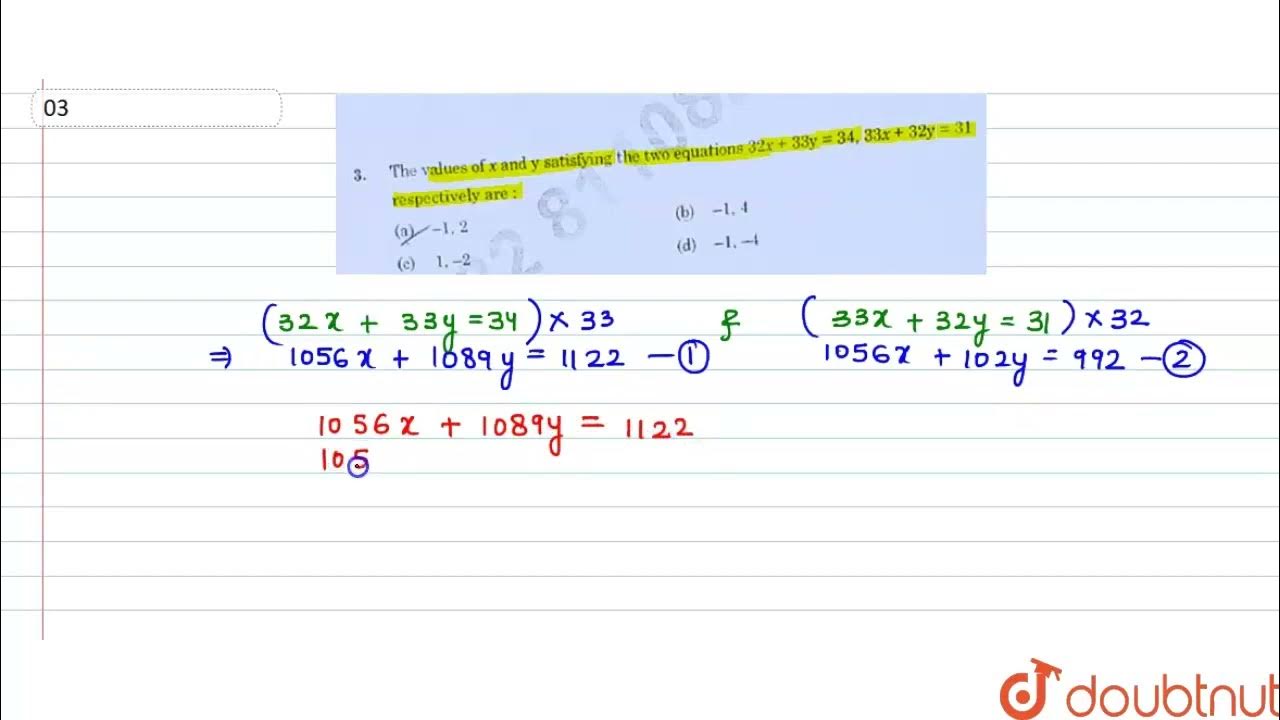 03
3. The values of x and y satisfying the two equations 32x + 33y = 34, 33x + 32y = 31
respectively are :
(a) -1, 2 (b) -1, 4
(c) 1, -2 (d) -1, -4
(32x + 33y = 34) × 33 & (33x + 32y = 31) × 32
⇒ 1056x + 1089y = 1122 — ① 1056x + 102y = 992 — ②
1056x + 1089y = 1122
105
doubtnut